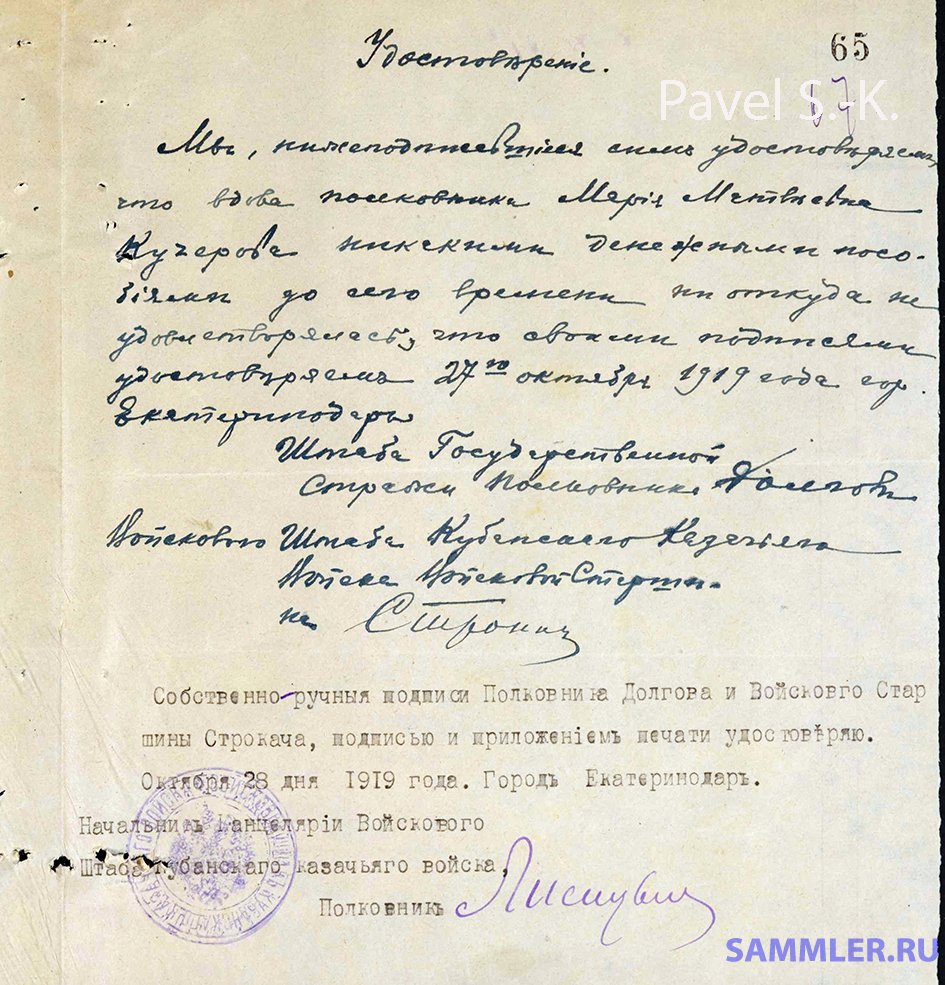 65
Удостовѣреніе.
Pavel S.-K.
67
Мы, нижеподписавшіеся симъ удостовѣряемъ,
что вдова полковника Марія Матвѣевна
Кучерова никакими денежными посо-
біями до сего времени ни откуда не
удовлетворялась, что своими подписями
удостовѣряемъ 27го октября 1919 года гор.
Екатеринодаръ
Штаба Государственной
Стражи Полковникъ Долговъ
Войскового Штаба Кубанскаго Казачьяго
Войска Войсковой Старши-
на Строкач
Собственно-ручныя подписи Полковника Долгова и Войсковго Стар
шины Строкача, подписью и приложеніемъ печати удостовѣряю.
Октября 28 дня 1919 года. Городъ Екатеринодаръ.
Начальникъ Канцеляріи Войскового
Штаба Кубанскаго казачьяго войска,
Полковникъ
SAMMLER.RU